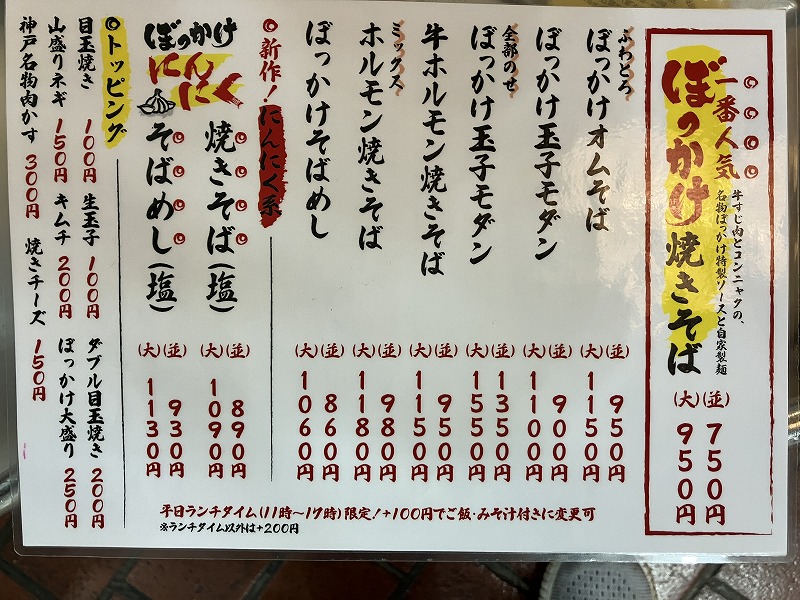 一番人気
ぼっかけ焼きそば
牛すじ肉とコンニャクの、
名物ぼっかけ特製ソースと自家製麺
(並) 750円
(大) 950円
ふわとろ
ぼっかけオムそば
(並) 950円
(大) 1150円
ぼっかけ玉子モダン
(並) 900円
(大) 1100円
全部のせ
ぼっかけ玉子モダン
(並) 1350円
(大) 1550円
牛ホルモン焼きそば
(並) 950円
(大) 1150円
ミックス
ホルモン焼きそば
(並) 980円
(大) 1180円
ぼっかけそばめし
(並) 860円
(大) 1060円
◎新作!にんにく系
ぼっかけ
にんにく
焼きそば(塩)
(並) 890円
(大) 1090円
そばめし(塩)
(並) 930円
(大) 1130円
◎トッピング
目玉焼き 100円 生玉子 100円 ダブル目玉焼き 200円
山盛りネギ 150円 キムチ 200円 ぼっかけ大盛り 250円
神戸名物肉かす 300円 焼きチーズ 150円
平日ランチタイム(11時〜17時)限定!+100円でご飯・みそ汁付きに変更可
※ランチタイム以外は+200円